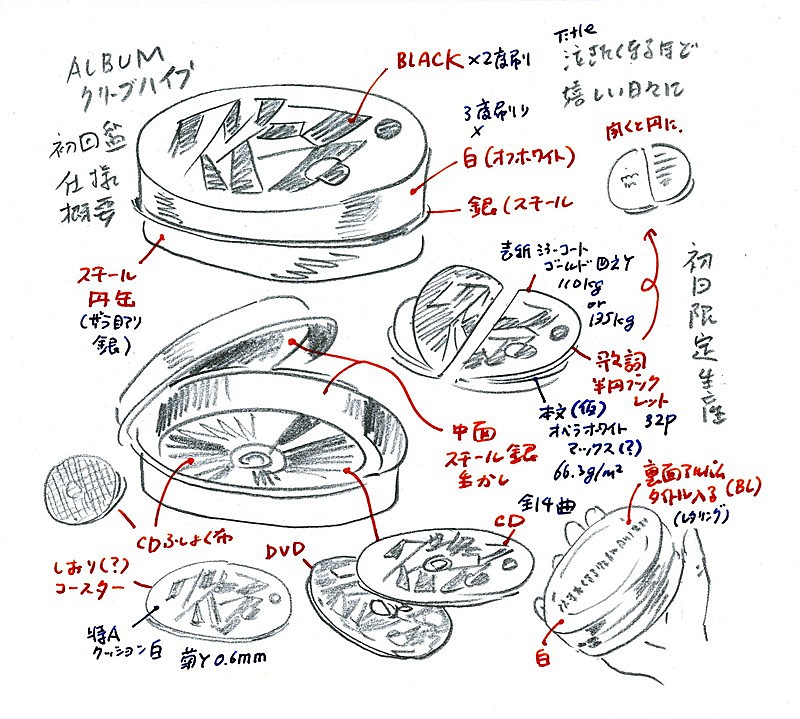 ALBUM
クリープハイプ
初回盤
仕様
概要
BLACK×2度刷り
Title
泣きたくなるほど
嬉しい日々に
3度刷り
×
白(オフホワイト)
銀(スチール
開くと円に.
スチール
円缶
(ザラ目アリ
銀)
表紙 ミラーコート
ゴールド 四六Y
110kg
or
135kg
初回限定生産
歌詞
半円ブック
レット
32P
本文(仮)
オペラホワイト
マックス(?)
66.3g/m²
中面
スチール銀
生かし
全14曲
裏面アルバム
タイトル入る(BL)
(レタリング)
CDふしょく布
CD
DVD
しおり(?)
コースター
特A
クッション白
菊Y0.6mm
白